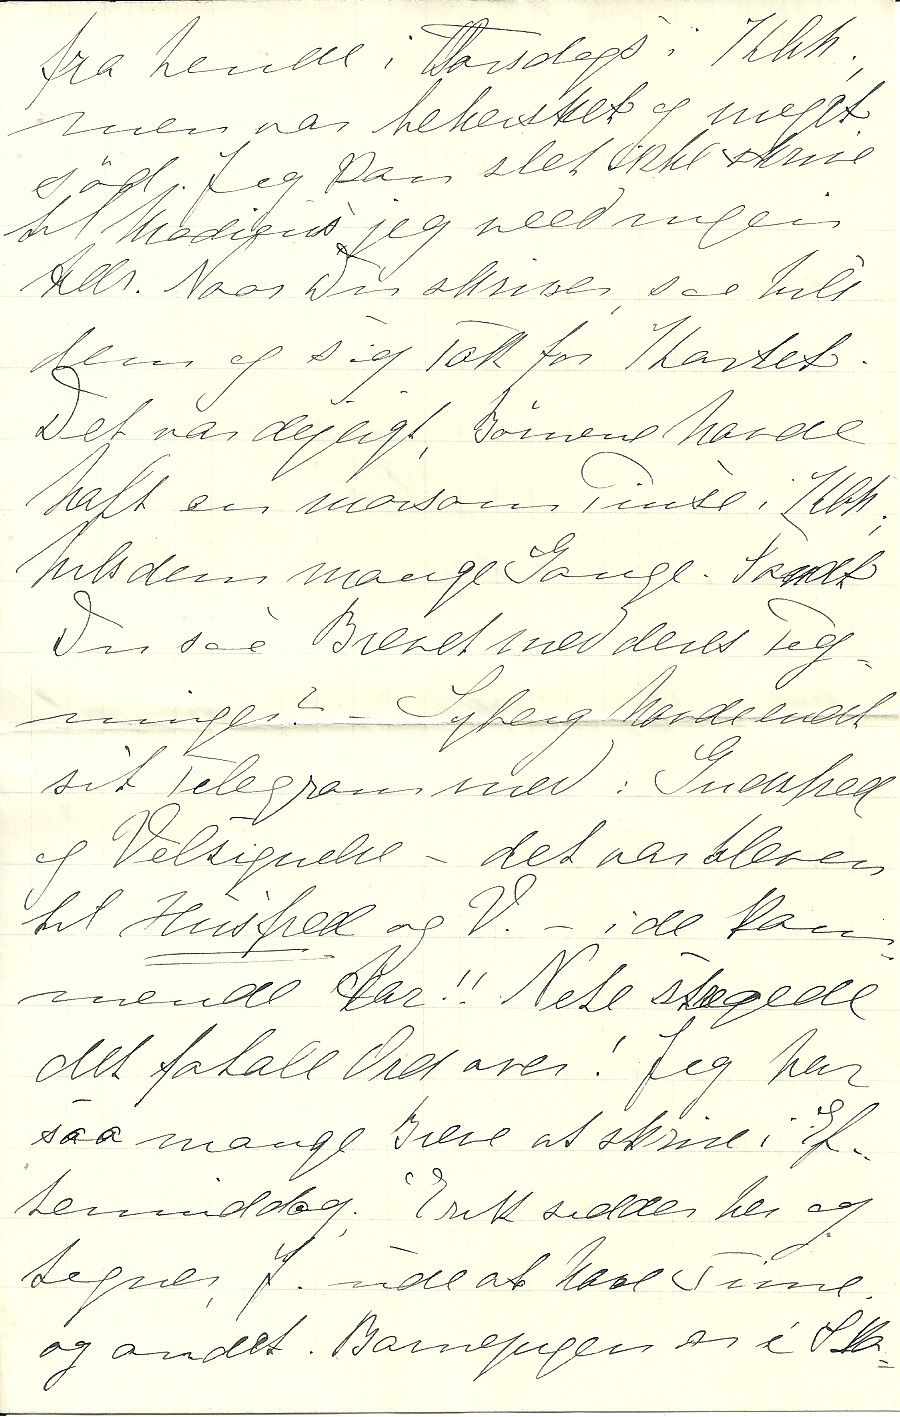 fra hende i Torsdags i Kbh.,
men var behersket og meget
sød. Jeg kan slet ikke skrive
til jeg veed ingen
Adr. Naar Du skriver, saa hils
dem og sig Tak for Kortet.
Det var dejligt, Børnene havde
haft en morsom Pintse i Kbh.,
hils dem mange Gange. Fandt
Du saa Brevet med deres Teg-
ninger? - Syberg havde endt
sit Telegram med: Gudsfred
og Velsignelse - det var bleven
til Husfred og V. - i de kom-
mende Aar!! Nete stregede
det fatale Ord over! Jeg har
saa mange Breve at skrive i Ef-
termiddag. Erik sidder her og
tegner, J. ude at have Time
og andet. Barnepigen er i Sko-